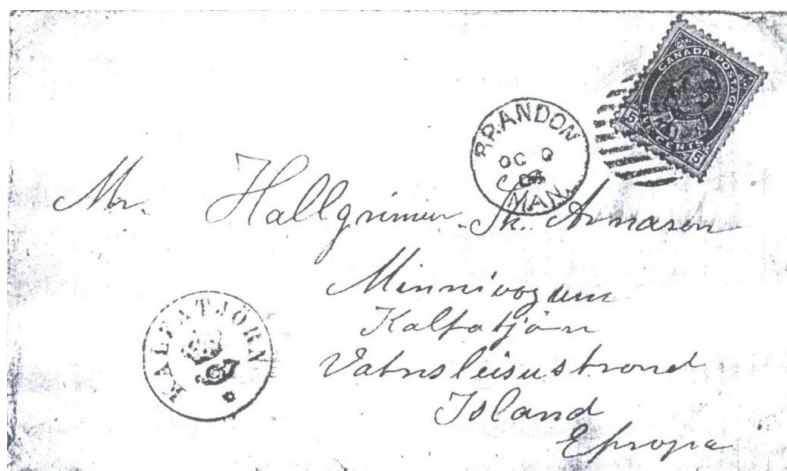 CANADA POSTAGE
5 FIVE CENTS 5
BRANDON
OC 9
MAN.
Mr. Hallgrimur Sk. Arnasen
Minnivogum
Kalfatjön
Vatnsleisustrond
Island
Efropa
KALFATJÖRN